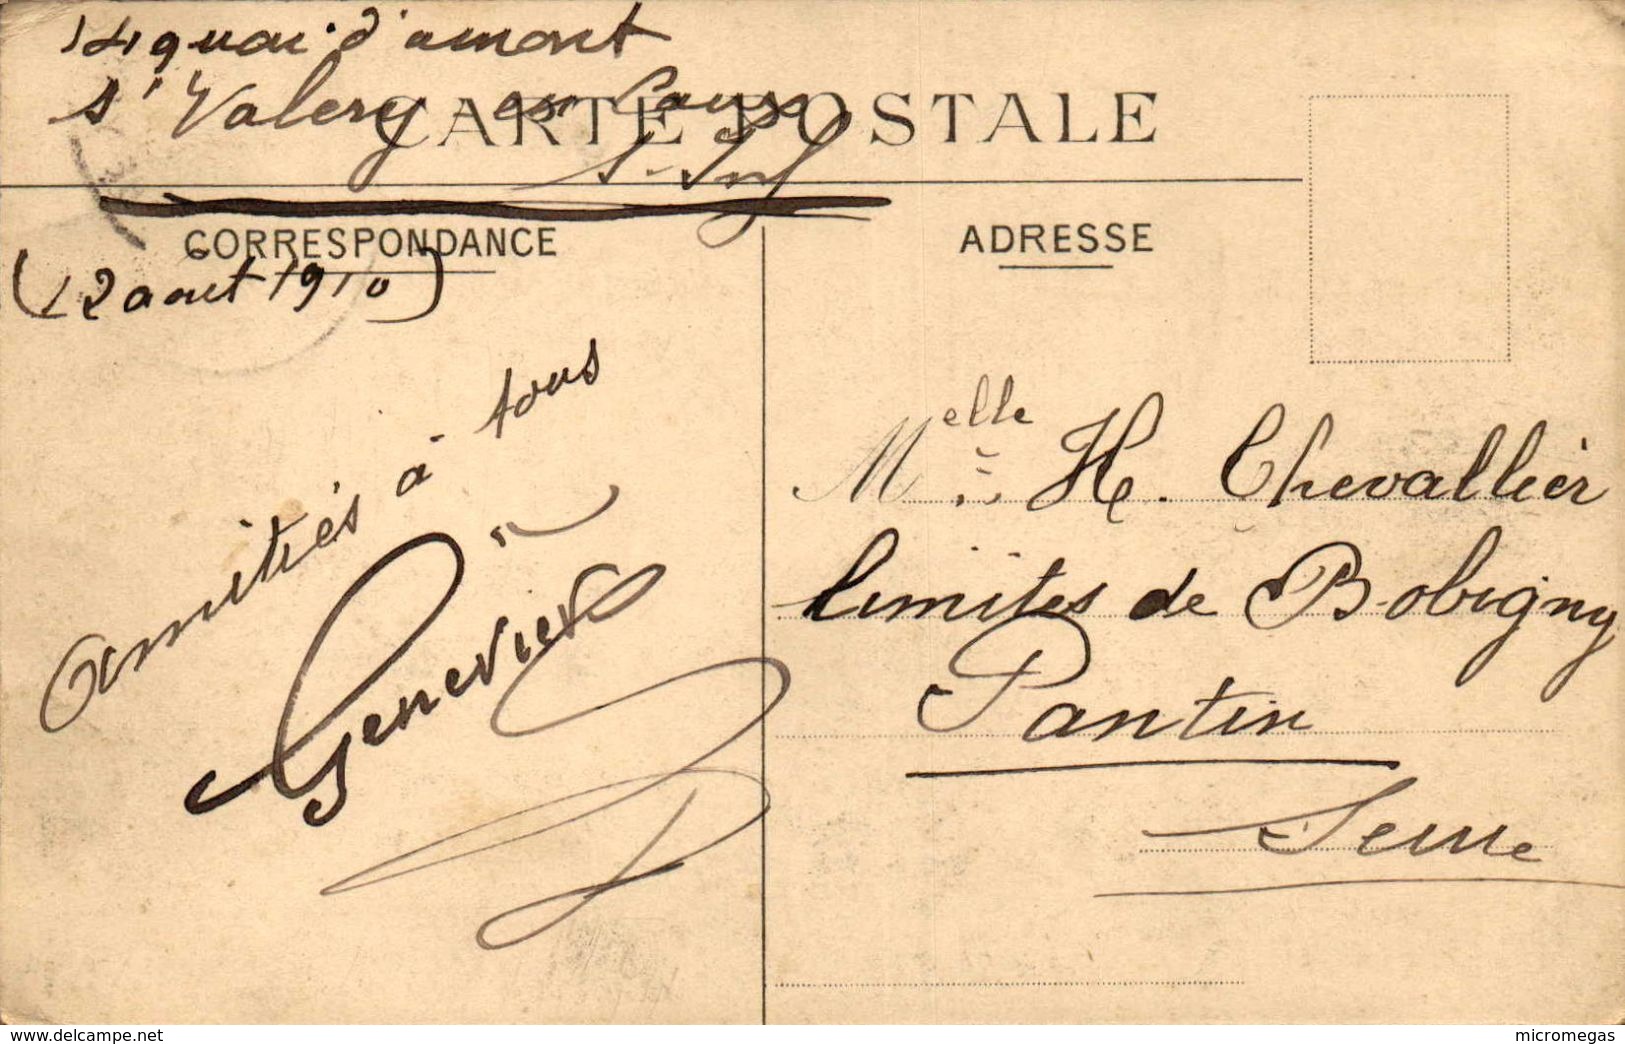 14 quai d'amont
St Valery en Caux
S-Inf
CARTE POSTALE
CORRESPONDANCE
(12 aout 1910)
Amitiés à tous
Genevieve
ADRESSE
Melle H. Chevallier
limites de Bobigny
Pantin
Seine
www.delcampe.net
micromegas